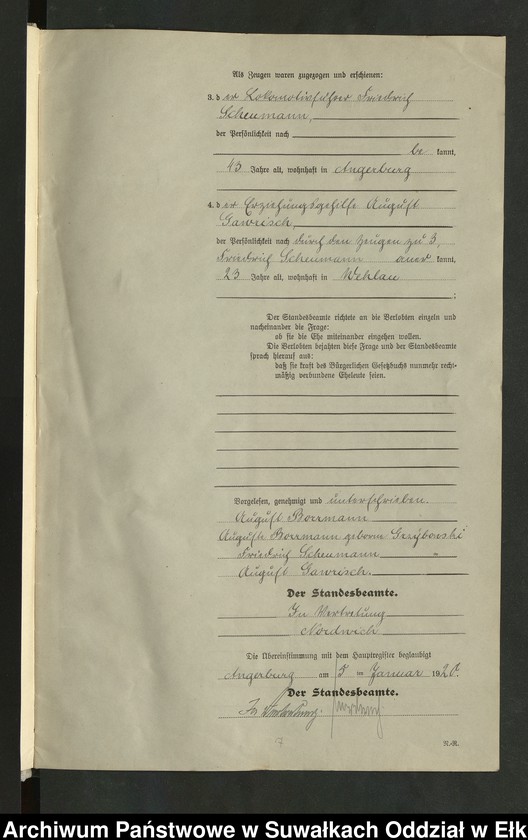 Als Zeugen waren zugezogen und erschienen:
3. der Lokomotivführer Friedrich
Scheumann,
der Persönlichkeit nach
be kannt,
43 Jahre alt, wohnhaft in Angerburg
4. der Erziehungsgehilfe August
Gawrisch,
der Persönlichkeit nach durch den Zeugen zu 3,
Friedrich Scheumann aner kannt,
23 Jahre alt, wohnhaft in Wehlau
;
Der Standesbeamte richtete an die Verlobten einzeln und
nacheinander die Frage:
ob sie die Ehe miteinander eingehen wollen.
Die Verlobten bejahten diese Frage und der Standesbeamte
sprach hierauf aus:
daß sie kraft des Bürgerlichen Gesetzbuchs nunmehr recht-
mäßig verbundene Eheleute seien.
Vorgelesen, genehmigt und unterschrieben.
August Borrmann
Auguste Borrmann geborene Grzybowski
Friedrich Scheumann
August Gawrisch.
Der Standesbeamte.
In Vertretung
Nordwich
Die Übereinstimmung mit dem Hauptregister beglaubigt
Angerburg am 5 ten Januar 1920.
Der Standesbeamte.
In Vertretung.
N.-R.
Archiwum Państwowe w Suwałkach Oddział w Ełku